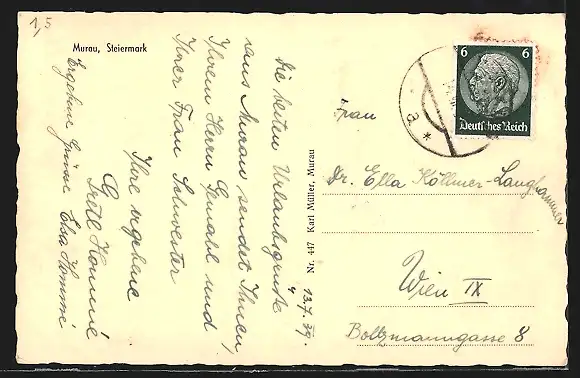 1,5
Murau, Steiermark
13.7.39.
Die besten Urlaubsgrüße
aus Murau sendet Ihnen,
Ihrem Herrn Gemahl und
Ihrer Frau Schwester
Ihre ergebene
Gretl
Ergebene Grüsse Elsa
Nr. 447 Karl Müller, Murau
6 6
Deutsches Reich
a *
Frau
Dr. Ella Köllmer-Langhammer
Wien IX
Boltzmanngasse 8